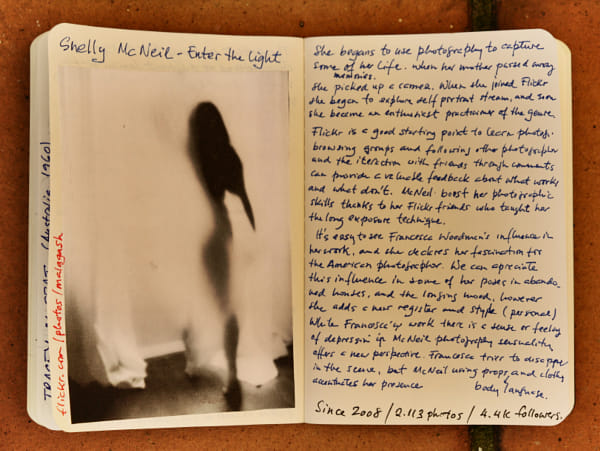 Shelly McNeil - Enter the Light
(Australia 1960)
flickr.com/photos/malagash
She begans to use photography to capture
some of her life. When her mother passed away
memories.
She picked up a camera. When she joined Flickr
she began to explore self portrait stream, and soon
she became an enthusiast practicioner of the genre.
Flickr is a good starting point to learn photogr.
browsing groups and following other photographer
and the iteraction with friends through comments
can provide a veluable feedback about what works
and what don't. McNeil boost her photographic
skills thanks to her Flickr friends who taught her
the long exposure technique.
It's easy to see Francesca Woodman's influence in
her work, and she declares her fascination for
the American photographer. We can apreciate
this influence in some of her poses in abando-
ned houses, and the longing mood, however
she adds a new register and style (personal)
While Francesca's work there is a sense or feeling
of depression in McNeil photography sensuality
offers a new perspective. Francesca tries to disappear
in the scene, but McNeil using props, and cloths
accentuates her presence body language.
Since 2008 / 2.113 photos / 4.4K followers.